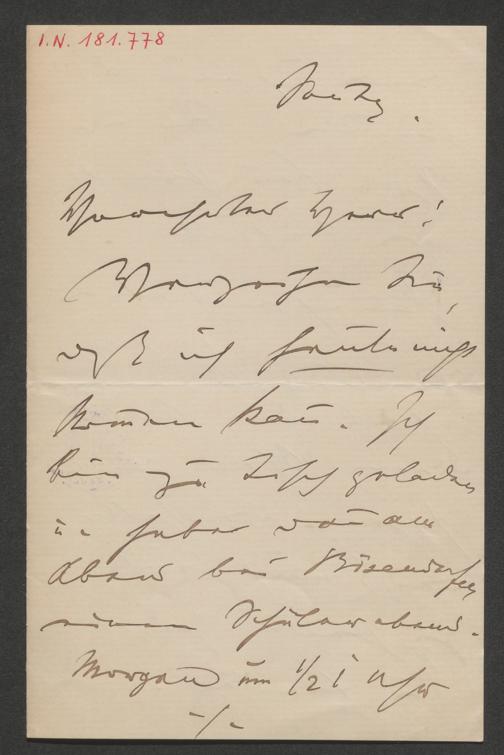 I.N. 181.778
Freitag.
Verehrter Herr!
Verzeihen Sie,
daß ich heute nicht
kommen kann. Ich
bin zu Tisch geladen
u. habe dann am
Abend bei Bösendorfer
einen Schülerabend.
Morgen um 1/2 1 Uhr
-/-